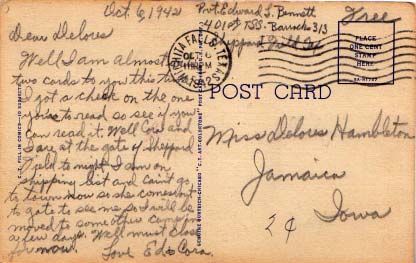 Oct. 6, 1942
Dear Delores
Well I am almost
two cards to you this time
I got a check on the one
you're to read so see if you
can read it. Well Cora and
I are at the gate of Sheppard
Field to night I am on
shipping list and can't go
to town now so she comes out
to gate to see me so I will be
moved to some other camp in
a few days. Well must close
for now. Love Ed & Cora.
Pvt. Edward L. Bennett
401st TSS. Barracks 313
Sheppard Field
Free
WICHITA FALLS
OCT
1942
PLACE
ONE CENT
STAMP
HERE
POST CARD
Miss Delores Hambleton
Jamaica
Iowa
2¢